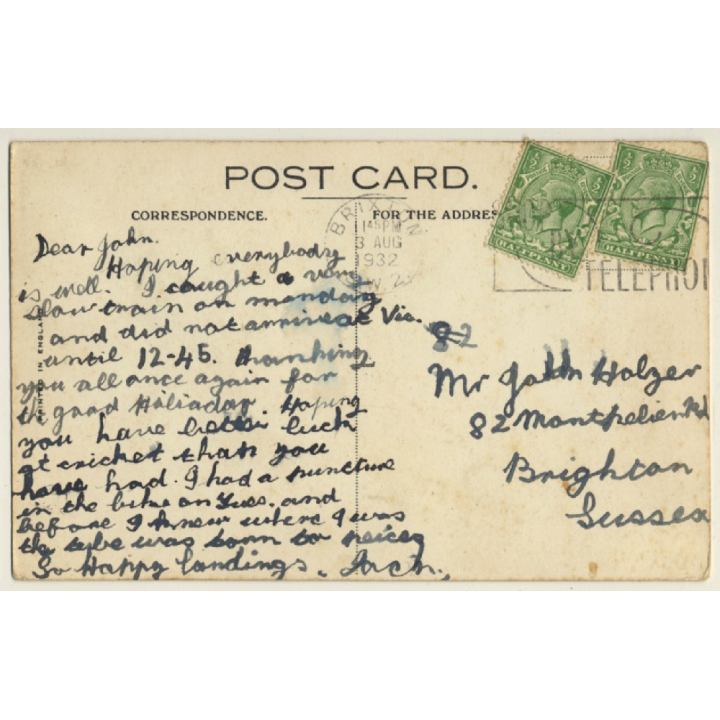 POST CARD.
CORRESPONDENCE.
FOR THE ADDRES
BRIXTON
1 45 PM
3 AUG
1932
TELEPHO
HALFPENNY
HALFPENNY
PRINTED IN ENGLA
Dear John.
Hoping everybody
is well. I caught a very
slow train on monday
and did not arrive at Vic.
until 12-45. thanking
you all once again for
th good Holiaday. Hoping
you have better luck
at cricket than you
have had. I had a puncture
in the bike on Tues. and
before I knew where I was
the tybe was torn to peices
So Happy landings, Arch.
82
Mr John Holzer
82 Montpelier Rd
Brighton
Sussex